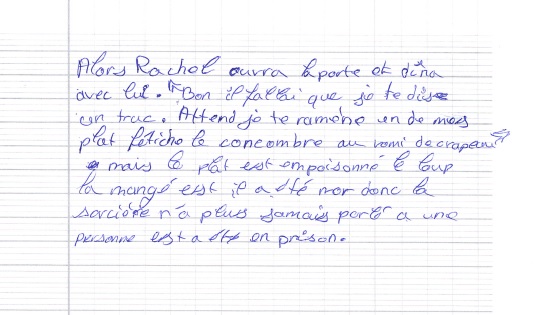 Alors Rachel ouvra la porte et dîna
avec lui. "Bon il fallai que je te dise
un truc. Attend je te ramène un de mes
plat fétiche le concombre au vomi de crapeau"
mais le plat est empoisonné le loup
la mangé est il a été mor donc la
sorcière n'a plus jamais parlé a une
personne est a été en prison.